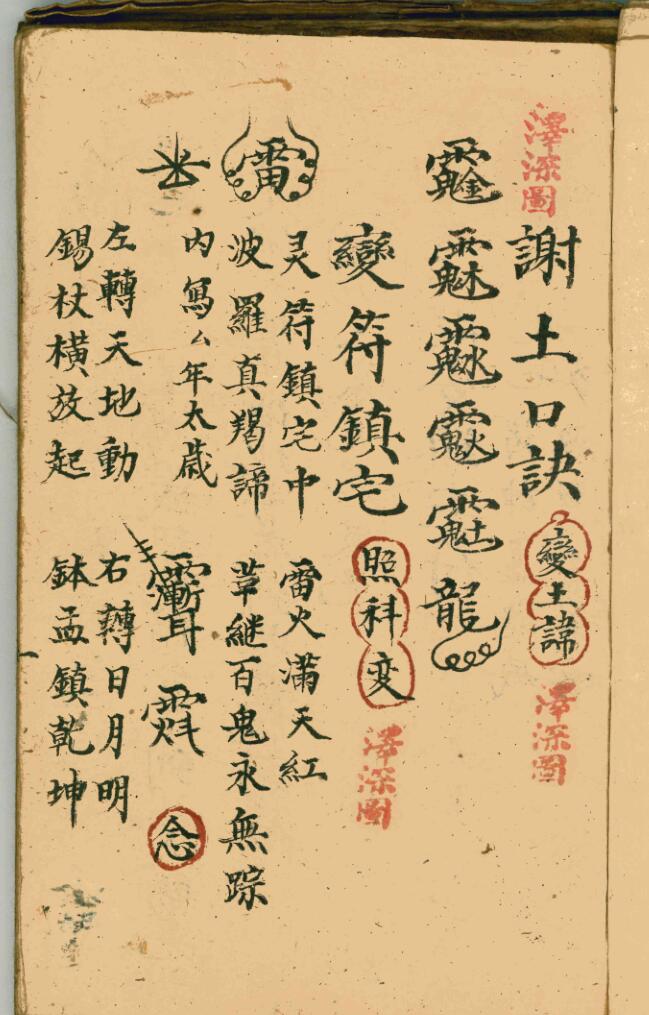 澤深圖
謝土口訣 變土諱
澤深圖
龍
變符鎮宅 照科变
澤深圖
灵符鎮宅中 雷火滿天紅
雷
波羅真羯諦 草継百鬼永無踪
内寫厶年太歳
念
左轉天地動 右轉日月明
錫杖橫放起 鉢盂鎮乾坤